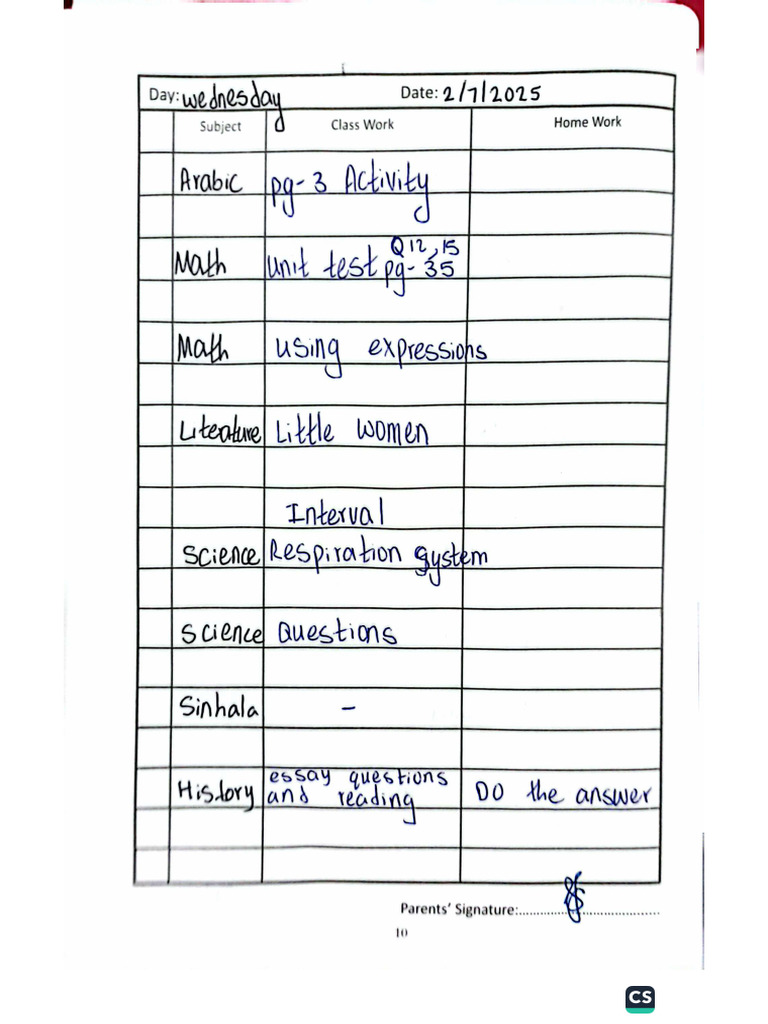 Day: Wednesday Date: 2/7/2025
Subject Class Work Home Work
Arabic pg-3 Activity
Q12,15
Math Unit test pg-35
Math using expressions
Literature Little women
Interval
Science Respiration system
Science Questions
Sinhala -
essay questions
History and reading DO the answer
Parents' Signature:
10
CS